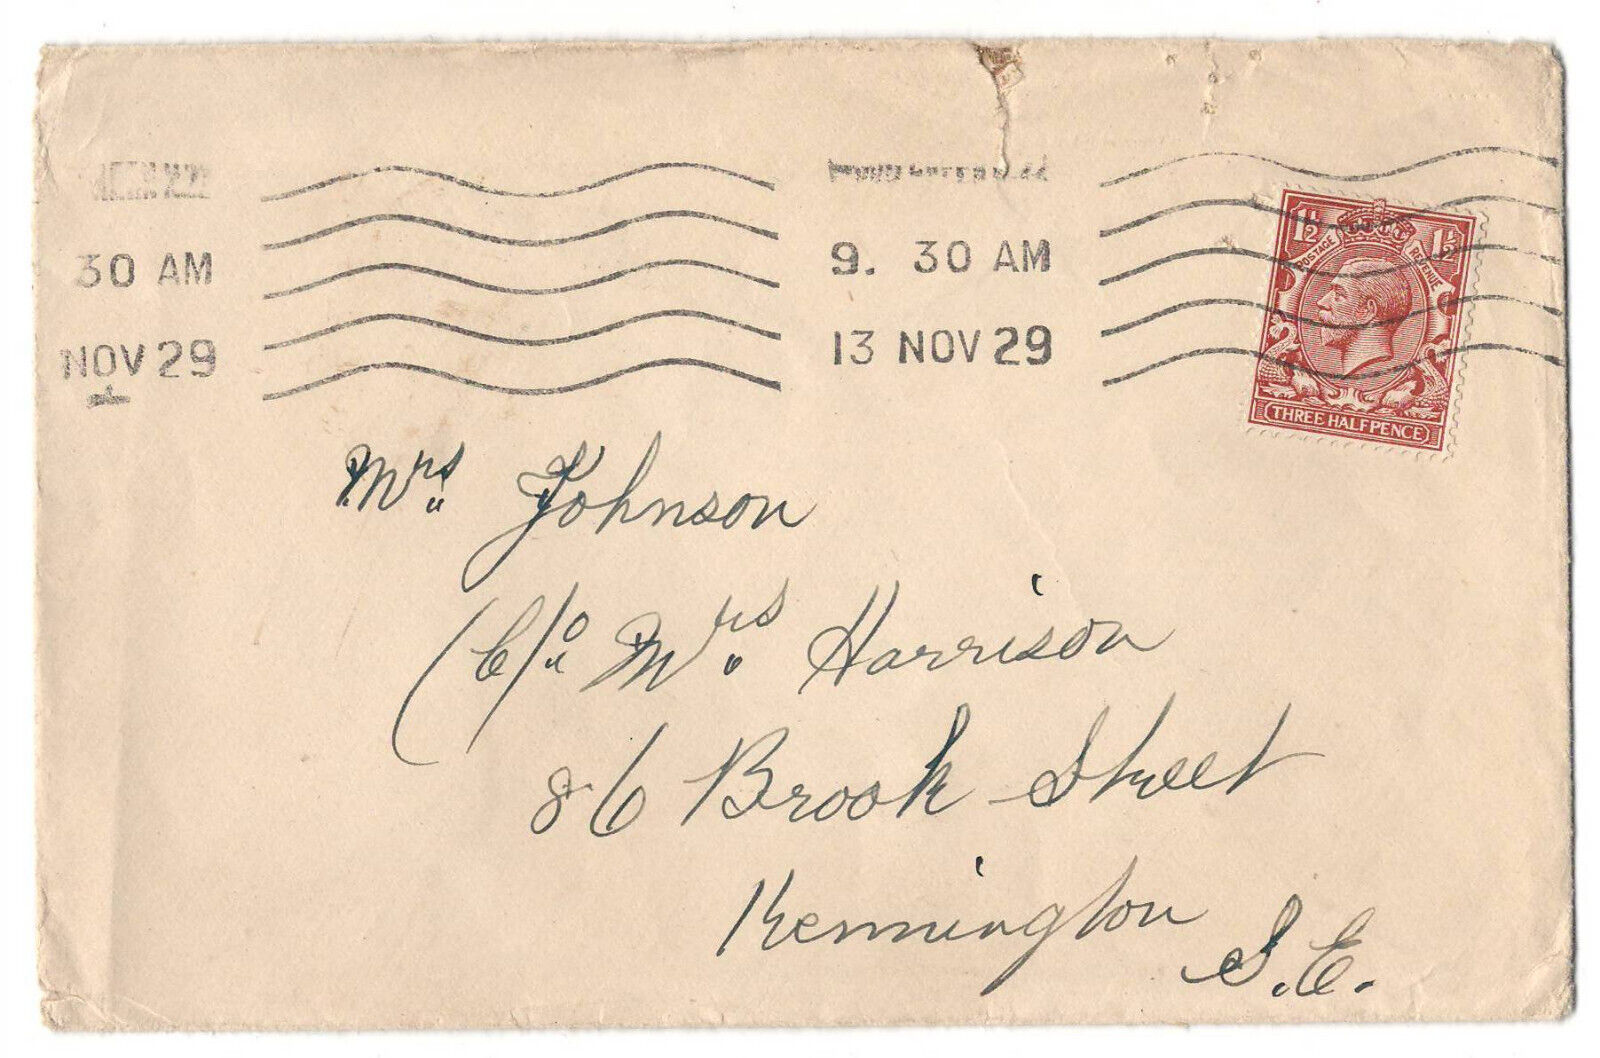 30 AM 9. 30 AM
NOV 29 13 NOV 29
1½ 1½
POSTAGE REVENUE
THREE HALFPENCE
Mrs Johnson
(C/o Mrs Harrison
86 Brook Street
Kennington
S.E.